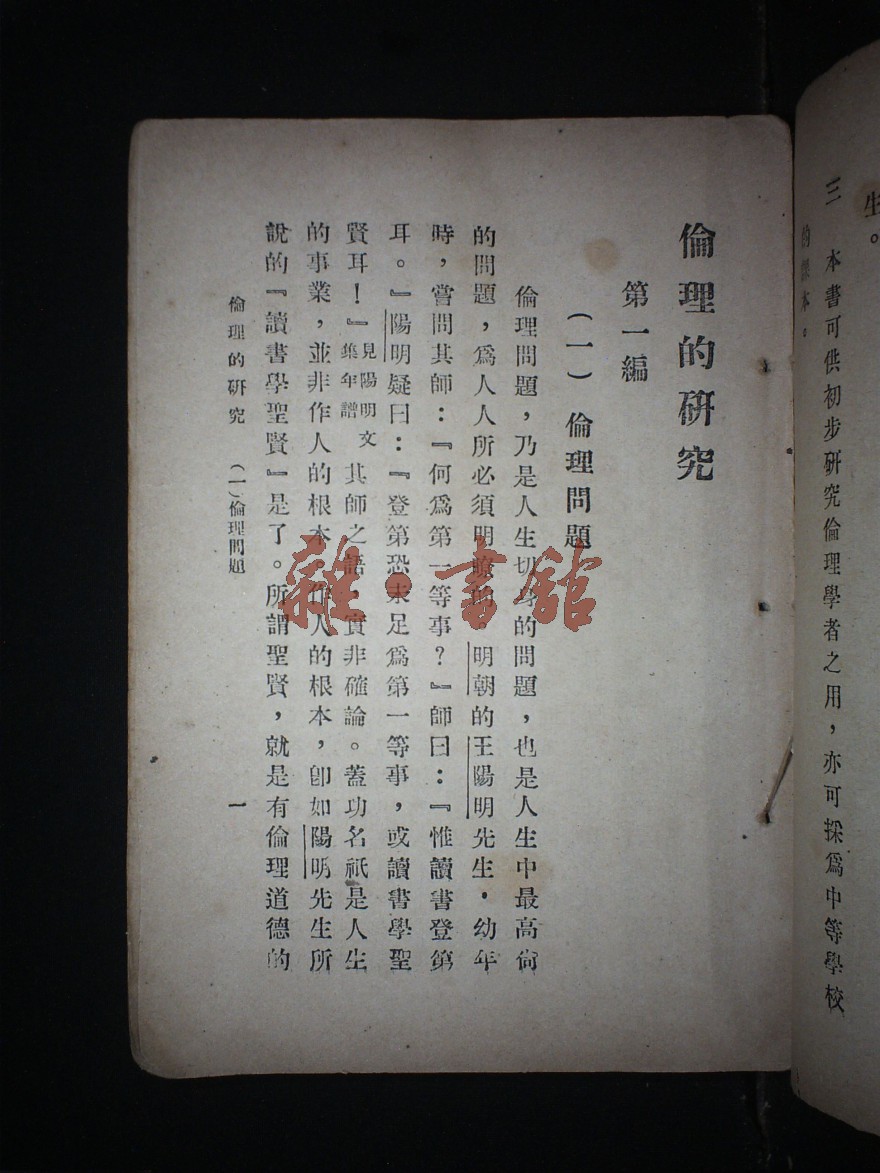 生。
三　本書可供初步研究倫理學者之用，亦可採爲中等學校
的課本。
倫理的研究
第一編
（一）倫理問題
倫理問題，乃是人生切身的問題，也是人生中最高尙
的問題，爲人人所必須明瞭的。明朝的王陽明先生，幼年
時，嘗問其師：『何爲第一等事？』師曰：『惟讀書登第
耳。』陽明疑曰：『登第恐未足爲第一等事，或讀書學聖
賢耳！』見陽明文集年譜　其師之語，實非確論。蓋功名祇是人生
的事業，並非作人的根本，作人的根本，卽如陽明先生所
說的『讀書學聖賢』是了。所謂聖賢，就是有倫理道德的
倫理的研究　（一）倫理問題　一
雜·書館